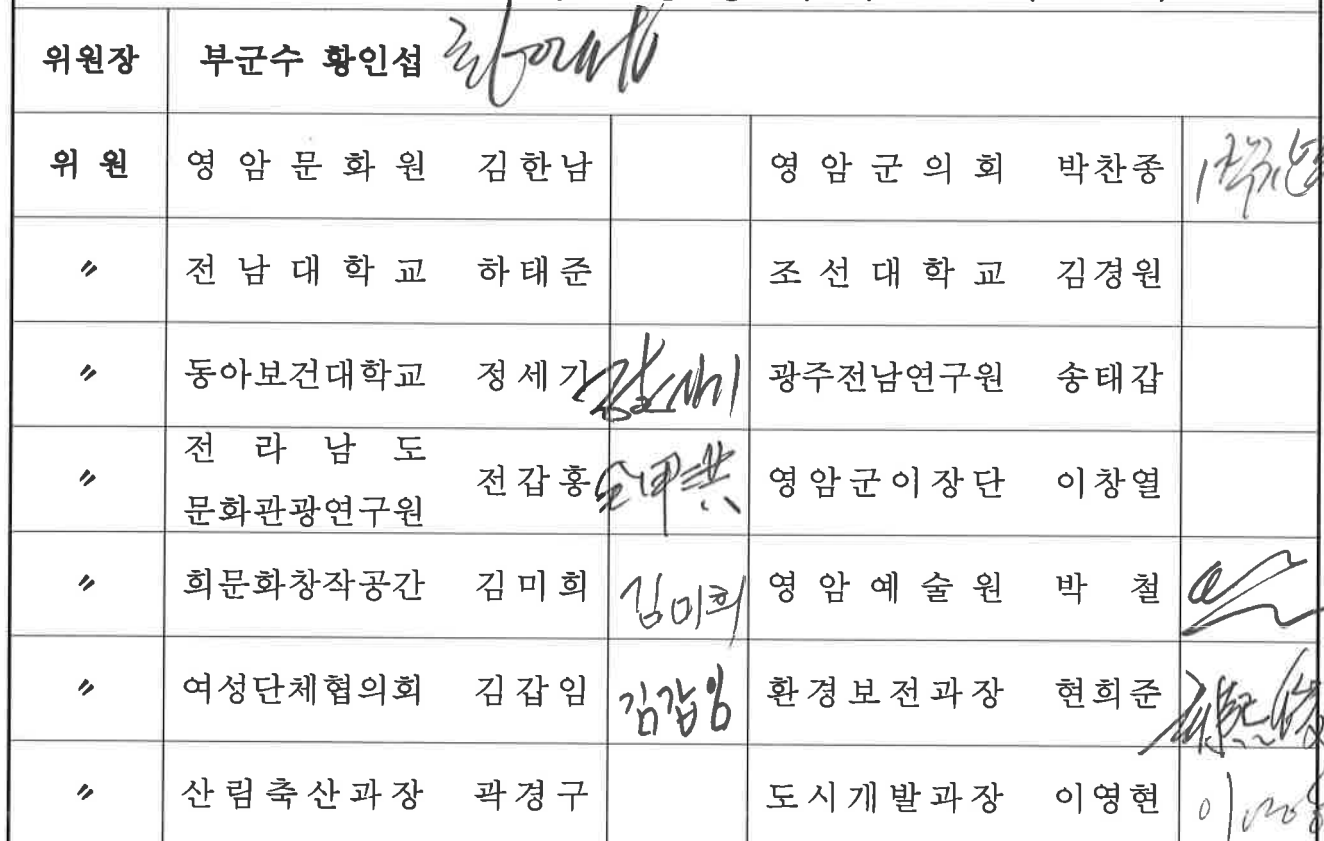 위원장 부군수 황인섭
위 원 영 암 문 화 원 김한남 영 암 군 의 회 박찬종
〃 전 남 대 학 교 하태준 조 선 대 학 교 김경원
〃 동아보건대학교 정세기 광주전남연구원 송태갑
〃 전 라 남 도
문화관광연구원 전갑홍 全甲洪 영암군이장단 이창열
〃 희문화창작공간 김미희 김미희 영 암 예 술 원 박 철
〃 여성단체협의회 김갑임 김갑임 환경보전과장 현희준
〃 산림축산과장 곽경구 도시개발과장 이영현